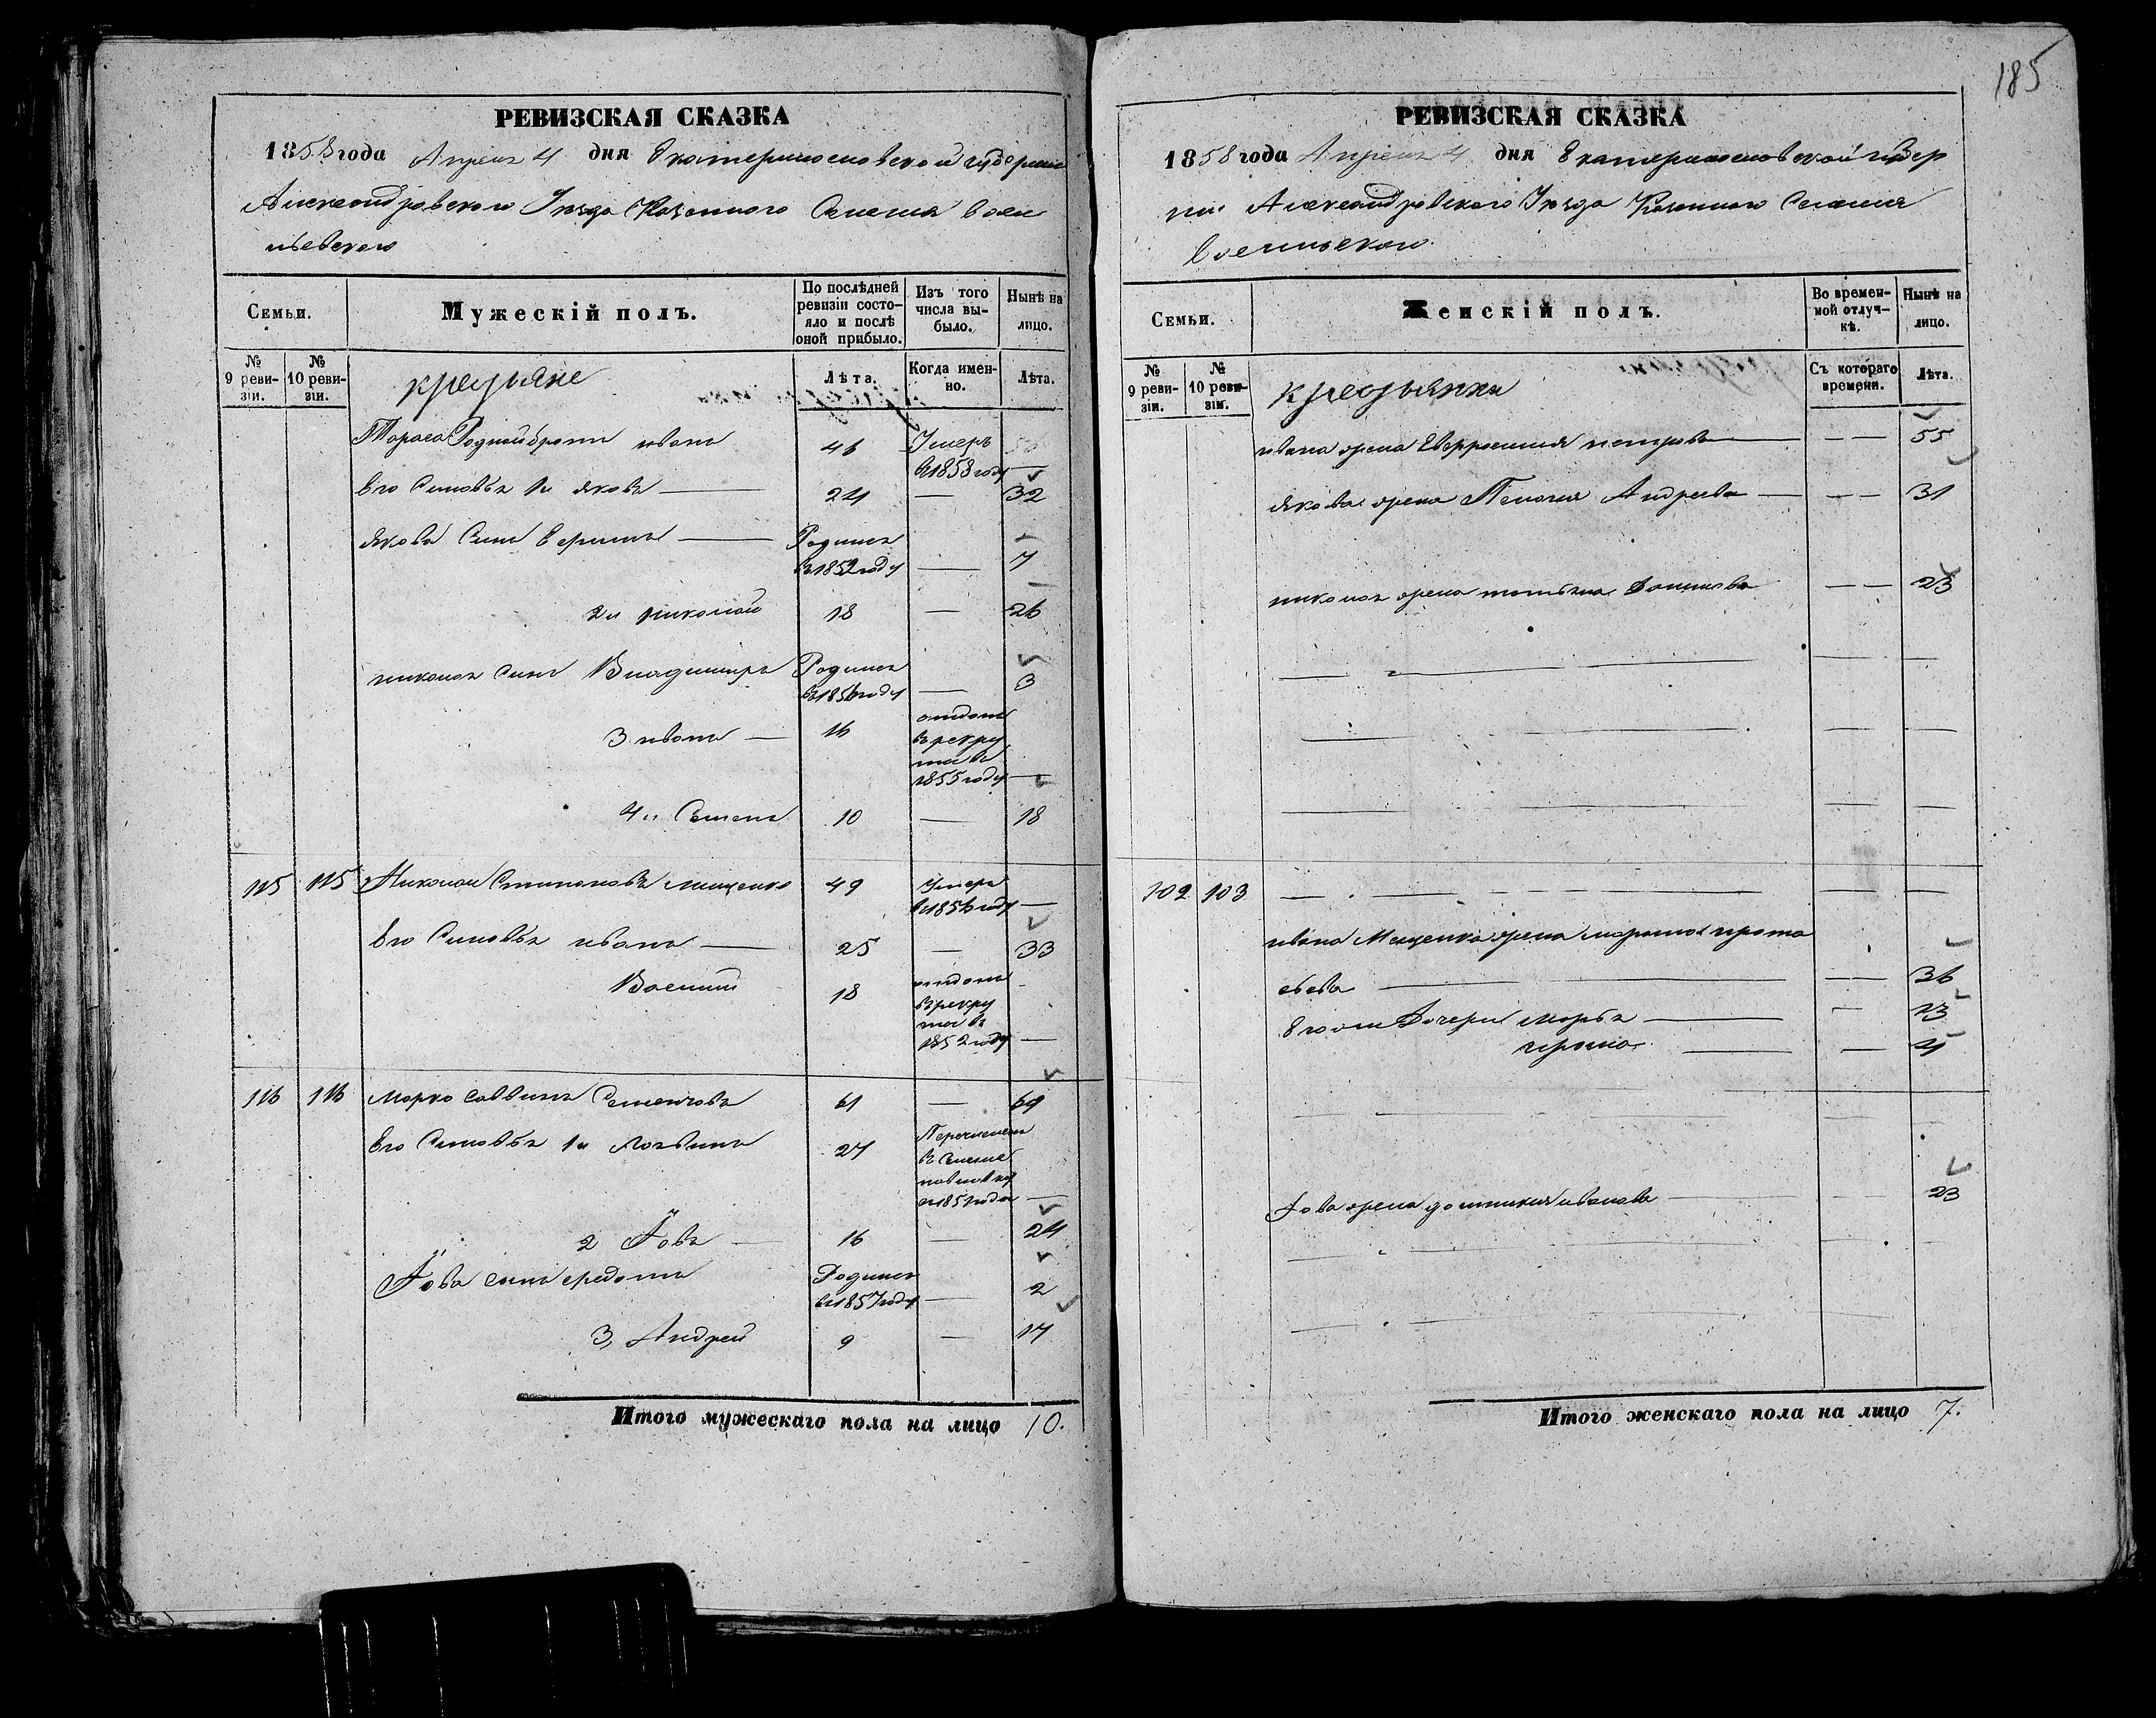 РЕВИЗСКАЯ СКАЗКА
1858 года Апреля 4 дня Екатеринославской губернии
Александровского Уезда Казенного Селения Васи
льевского
Семьи.
Мужескій полъ.
По послѣдней ревизіи состояло и послѣ оной прибыло.
Изъ того числа выбыло.
Нынѣ на лицо.
№ 9 ревизіи.
№ 10 ревизіи.
крестьяне
Лѣта.
Когда именно.
Лѣта.
Тараса Родной братъ иванъ 46 Умеръ
в 1858 году —
Его Сыновья 1й яковъ — 24 — 32
якова Сынъ Ефимъ — Родился
въ 1852 году — 7
2й николай 18 — 26
николая Сынъ Владимиръ Родился
въ 1856 году — 3
3 иванъ — 16 отданъ
въ рекру
ты въ
1855 году —
4й Семенъ 10 — 18
115 115 Николай Степановъ мищенко 49 умеръ
в 1856 году —
Его Сыновья иванъ — 25 — 33
Василий 18 отданъ
въ рекру
ты въ
1852 году —
116 116 марко саввинъ Семеновъ 61 — 69
Его Сыновья 1й логвинъ 27 Перечисленъ
2 Іовъ — 16 — 24
Іова сынъ федотъ Родился
в 1857 году — 2
3, Андрей 9 — 17
Итого мужескаго пола на лицо 10.
185
РЕВИЗСКАЯ СКАЗКА
1858 года Апреля 4 дня Екатеринославской губер
нии Александровского Уезда Казенного Селения
Васильевского.
Семьи.
Женскій полъ.
Во временной отлучкѣ.
Нынѣ на лицо.
№ 9 ревизіи.
№ 10 ревизіи.
крестьянки
Съ котораго времени.
Лѣта.
ивана жена Евфросиния петрова — — — 55
якова жена Пелагия Андреева — — — 31
николая жена татьяна Данилова — — 23
102 103
ивана Мищенка жена марина прота
сьева — — 36
Его они Дочери марья — — 13
ирина — — 4
Іова жена домникия иванова — 23
Итого женскаго пола на лицо 7.